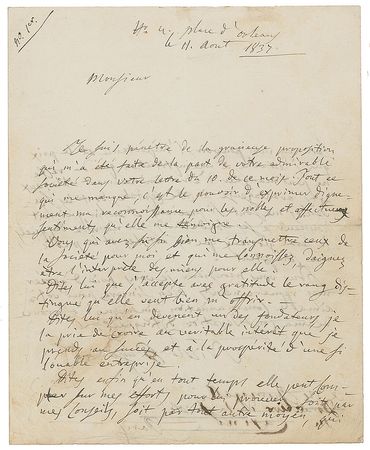 place d'Orleans
le 11. Aout 1837
Monsieur
Je suis pénétré de la gracieuse proposition
qui m'a été faite de la part de votre admirable
Société dans votre lettre du 10. de ce mois. Tout ce
qui me manque, c'est le pouvoir d'exprimer digne
ment ma reconnoissance pour les nobles et affectueux
sentiments qu'elle me témoigne
Vous, qui avez si bien me transmettre ceux de
la Société pour moi et qui me connoissez, daignez
être l'interprète des miens pour elle.
Dites lui que j'accepte avec gratitude le rang dis-
tingué qu'elle veut bien m'offrir. -
Dites lui qu'en devenant un des fondateurs je
la prie de croire au veritable intérêt que je
prends au succès et à la prosperité d'une si
louable entreprise.
Dites enfin qu'en tout temps elle peut Com-
pter sur mes effort, pour lui prouver, soit par
mes Conseils, soit par tout autre moyen, qui